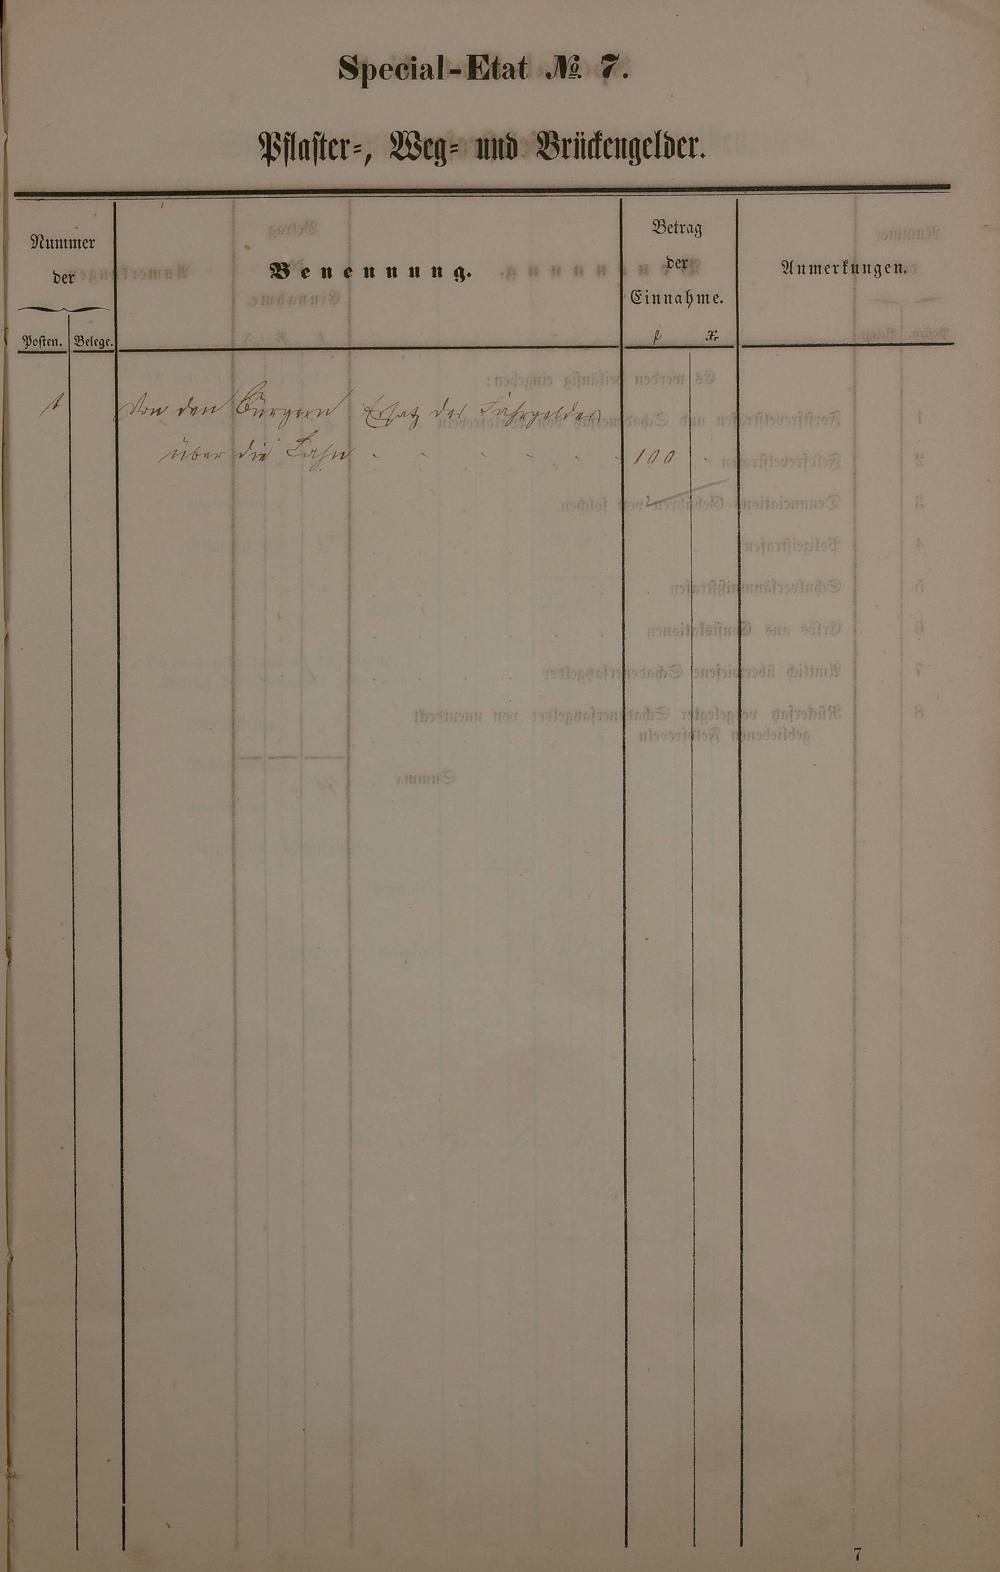 Special-Etat № 7.
Pflaster-, Weg- und Brückengelder.
Nummer
der
Posten. Belege.
Benennung.
Betrag
der
Einnahme.
f. Xr.
Anmerkungen.
1 Von den Bürgern Ersatz des Fahrgeldes
über die Lahn - - - - - - 100 -
7